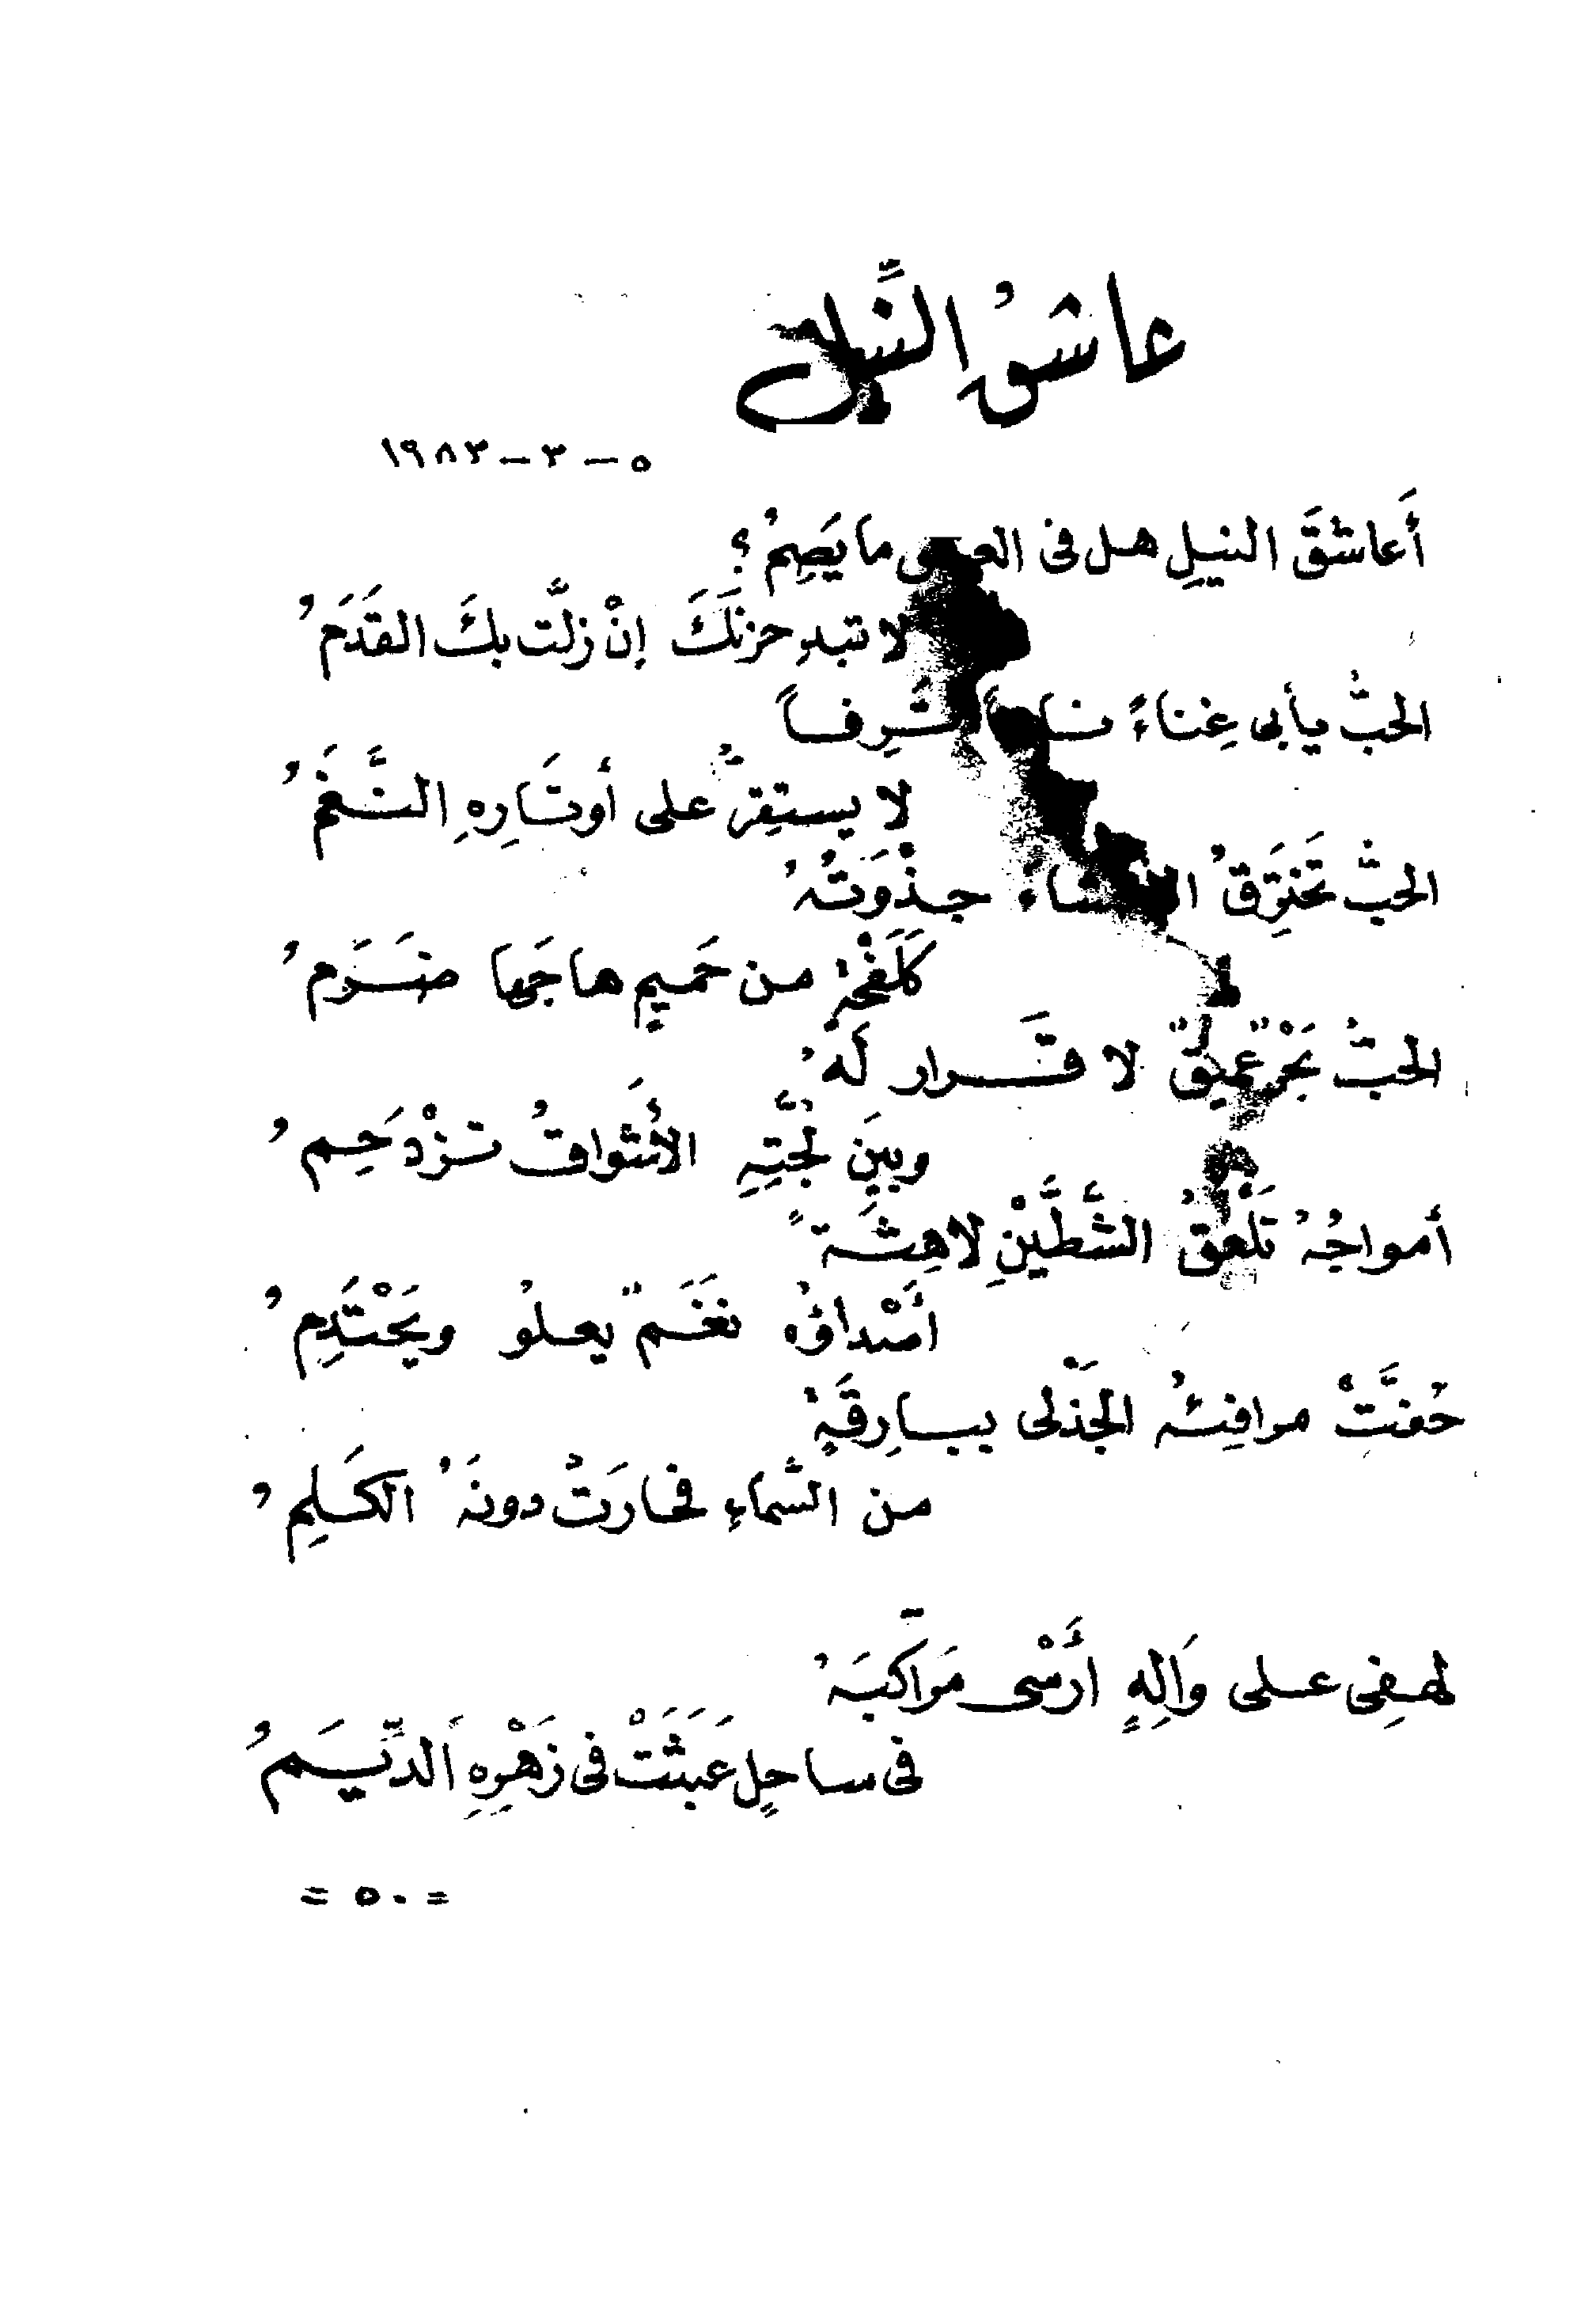 عاشقُ النِّيل
٥ - ٣ - ١٩٨٣
أَعاشقَ النيلِ هل فى ما يَصِمُ؟
لا تبدِ حزنَكَ إنْ زلَّت بكَ القَدَمُ
الحبُّ يأبى غِناءً تَرِفاً
لا يستقِرُّ على أوتَارِهِ النَّغَمُ
الحبُّ تَخترِقُ جذْوَتُهُ
كَلَفْحَةٍ من حَميمٍ هاجَها ضَرَمُ
الحبُّ بَحْرٌ عميقٌ لا قَرار لَهُ
وبينَ لُجَّتِهِ الأَشواقُ تزْدَحِمُ
أمواجُهُ تَلْعَقُ الشَّطَّيْنِ لاهِثةً
أَصْداؤُه نغَمٌ يعلُو ويَحْتَدِمُ
حُفَّتْ مرافِئُه الجَذْلى ببارِقَةٍ
من السَّماءِ فحارَتْ دونَهُ الكَلِمُ
لهفِى على وَالِهٍ أَرْسْى مَرَاكبَهُ
فى ساحلٍ عَبَثَتْ فى زَهْرِهِ الدِّيَمُ
= ٥٠ =